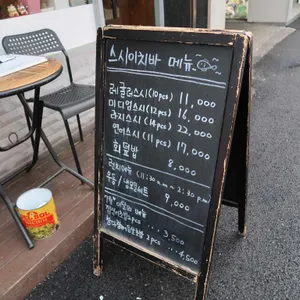 스시이치바 메뉴
레귤러스시(10pcs) 11,000
미디엄스시(12pcs) 16,000
라지스시(14pcs) 22,000
연어스시(11pcs) 17,000
회덮밥 8,000
런치메뉴 (11:30am~2:30pm)
우동 / 냉모밀세트 9,000
메뉴
3,500
2pcs ... 4,500